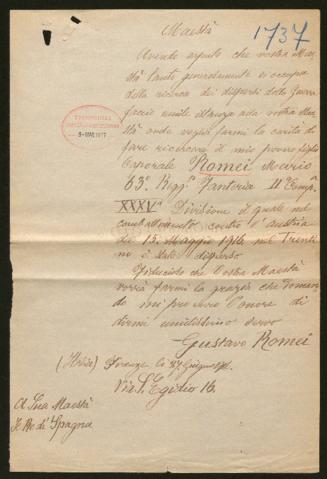 Maestà
1737
Avendo saputo che vostra Mae
stà tanto generosamente si occupa
della ricerca dei dispersi della Guerra
faccio umile istanza alla vostra Mae
stà onde voglia farmi la carità di
fare ricercare il mio povero figlio
Caporale Romei Mario
63º Regg. Fanteria 11ª Comp.ª
XXXVª Divisione il quale nel
combattimento contro l'Austria
del 15 Maggio 1916 nel Trenti
no è stato disperso
Fiducioso che Vostra Maestà
vorrà farmi la grazia che doman
do mi pregio l'onore di
dirmi umilissimo servo
Gustavo Romei
(Italia) Firenze li 27 Giugno
Via S. Egidio 16
A Sua Maestà
Il Re di Spagna